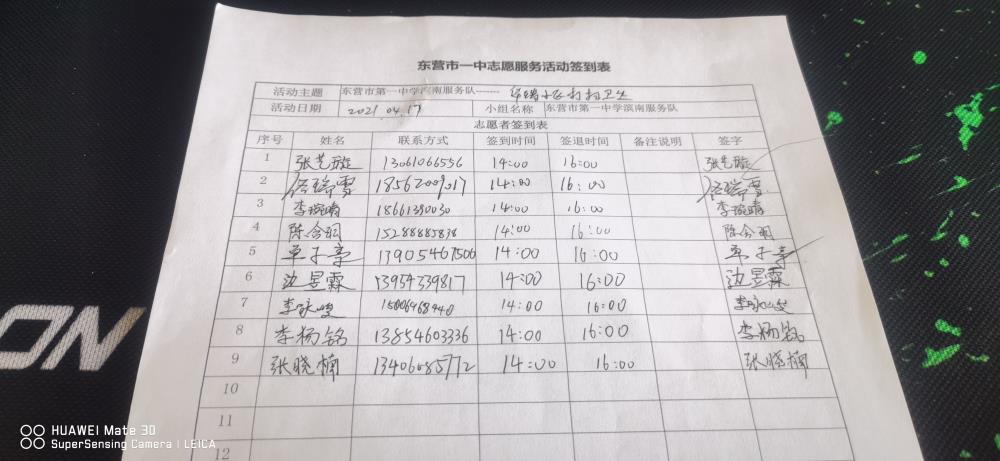 东营市一中志愿服务活动签到表
活动主题 东营市第一中学滨南服务队------ 小区打扫卫生
活动日期 2021.04.17 小组名称 东营市第一中学滨南服务队
志愿者签到表
序号 姓名 联系方式 签到时间 签退时间 备注说明 签字
1 张艺璇 13061066556 14:00 16:00 张艺璇
2 瑞雪 18562009017 14:00 16:00 瑞雪
3 李琬晴 18661380030 14:00 16:00 李琬晴
4 陈含羽 15288885838 14:00 16:00 陈含羽
5 单子亭 13905467506 14:00 16:00 单子亭
6 沈昱霖 13954339817 14:00 16:00 沈昱霖
7 李咏峻 15006468440 14:00 16:00 李咏峻
8 李杨铭 13884603336 14:00 16:00 李杨铭
9 张晓楠 13406085772 14:00 16:00 张晓楠
10
11
12
ON
HUAWEI Mate 30
SuperSensing Camera | LEICA